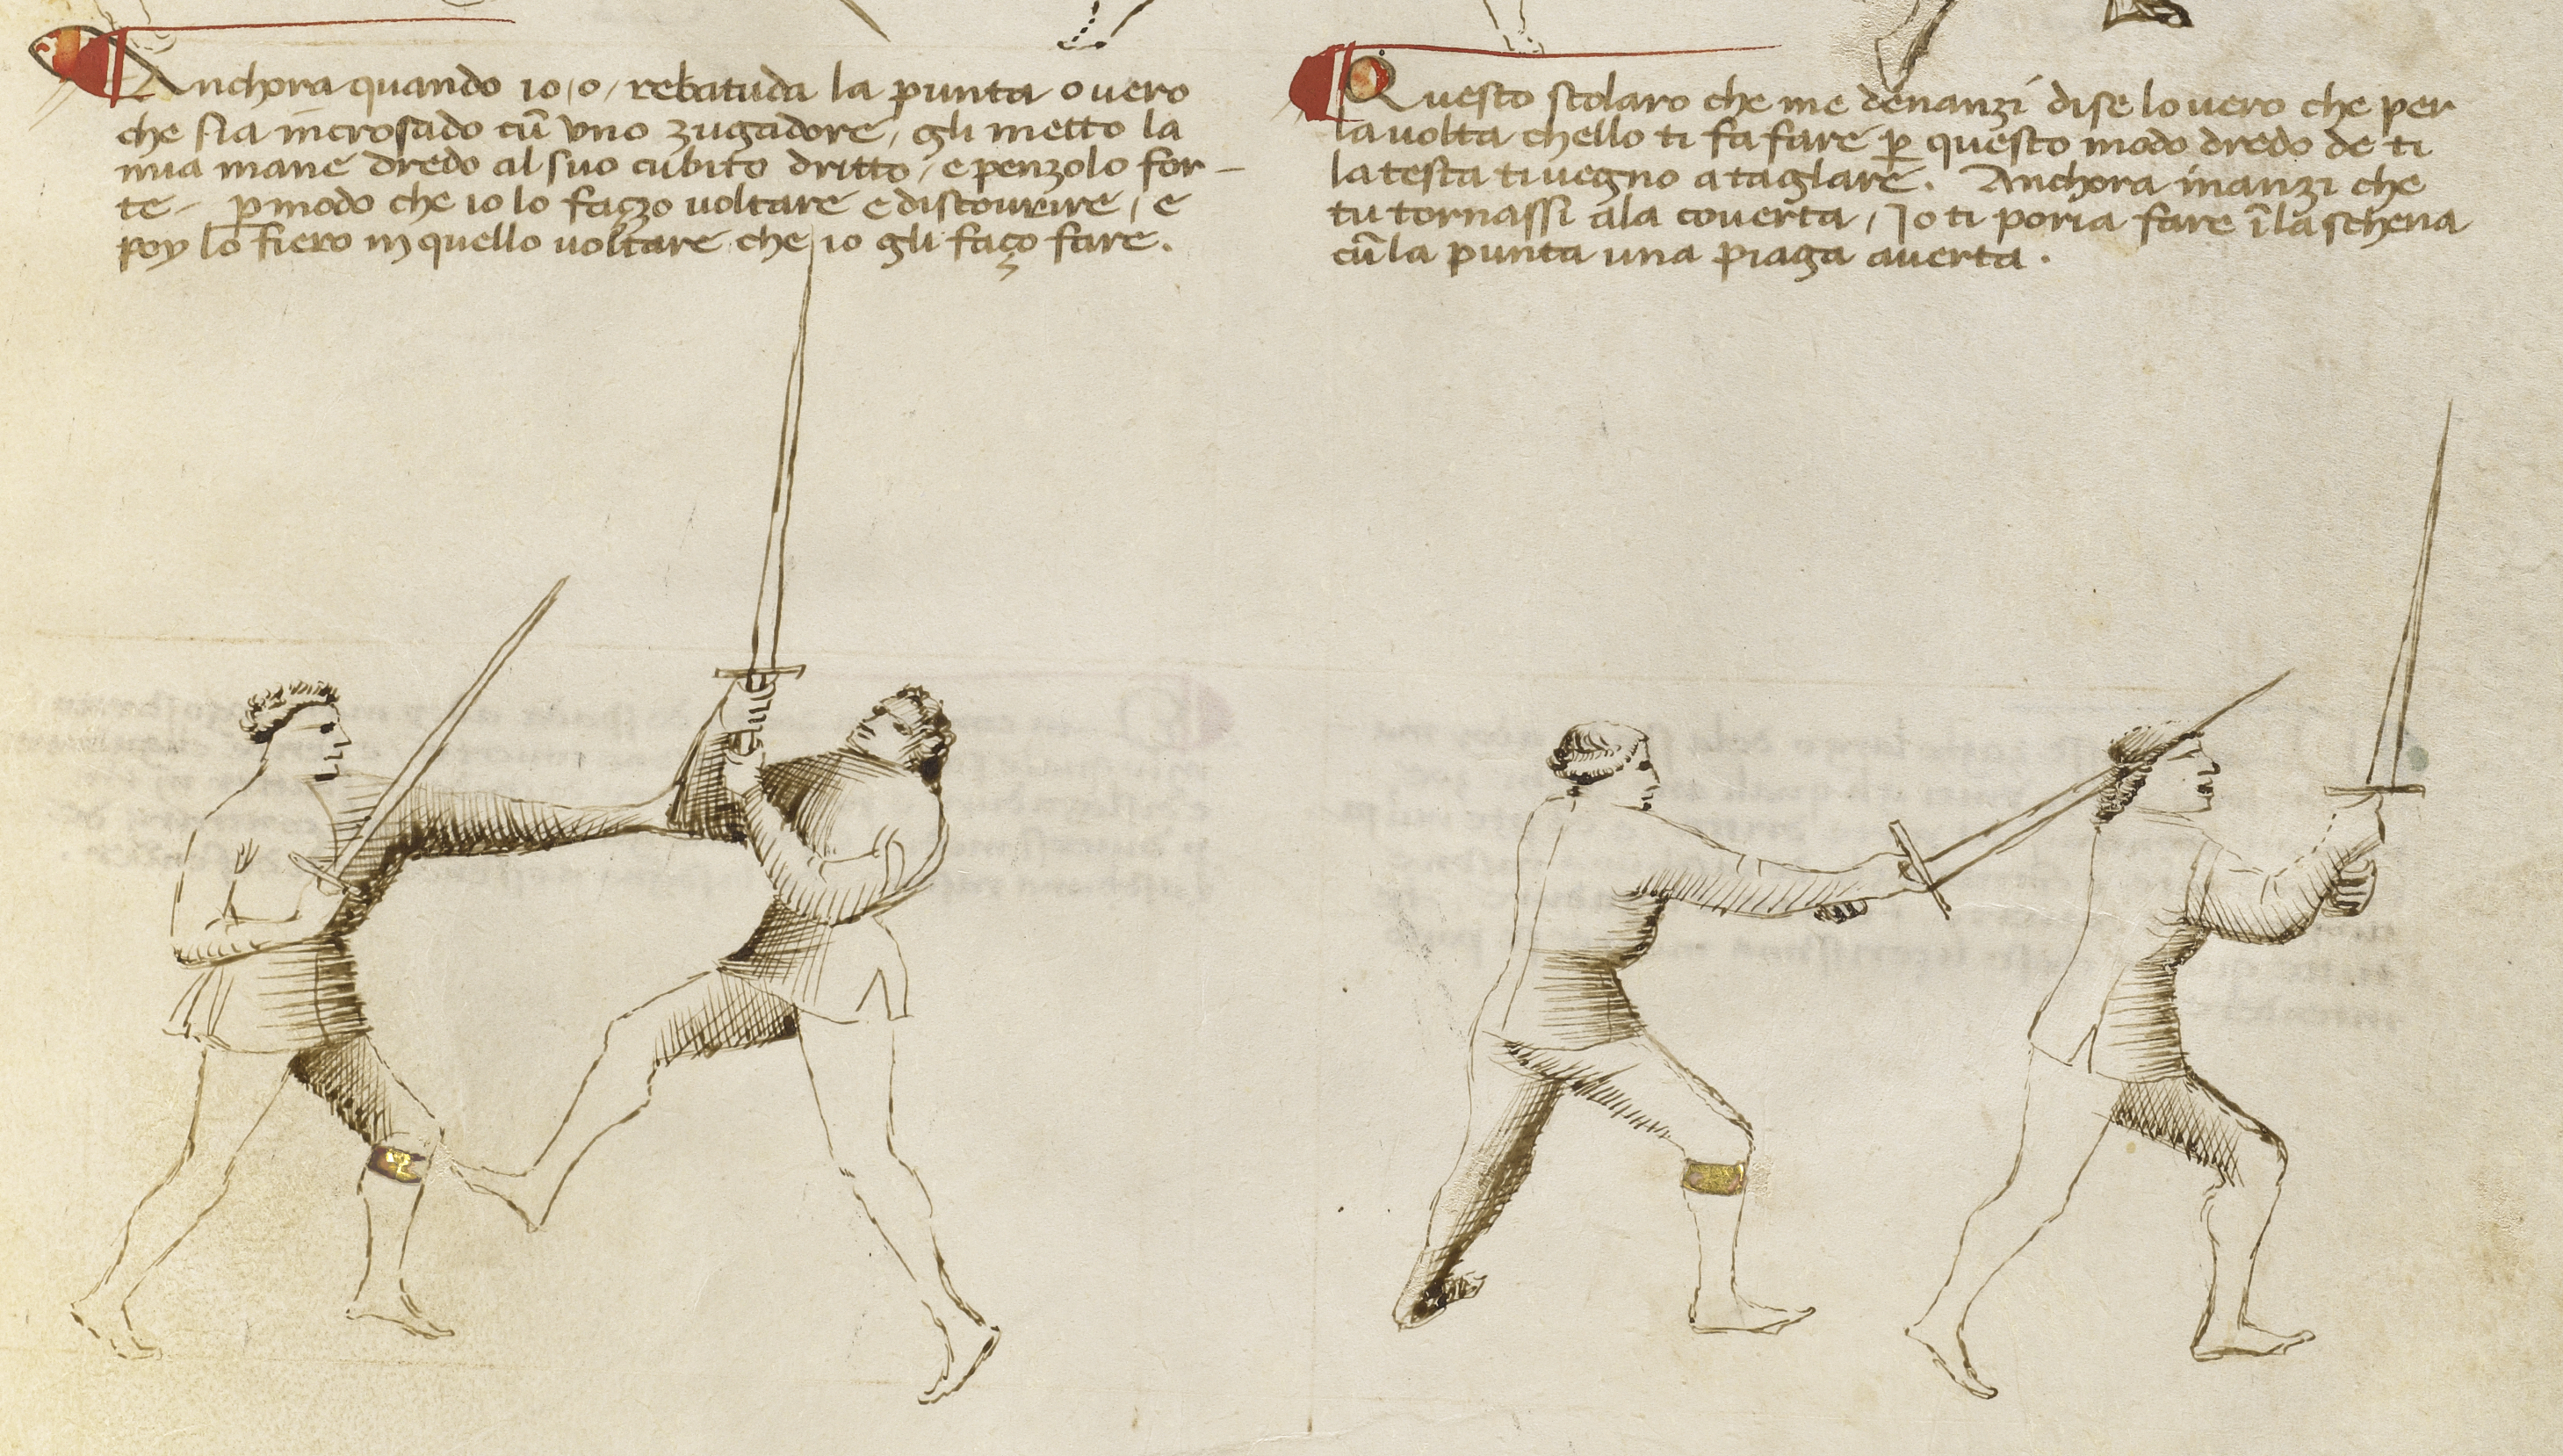 Anchora quando io / o / rebatuda la punta overo
che sia incrosado cū uno zugadore / gli metto la
mia mane dredo al suo cubito dritto / e penzolo for–
te – p modo che io lo fazzo voltare e discovrire / e
poy lo fiero in quello voltare che io gli faço fare.
Questo scolaro che me denanzi dise lo vero che per
la volta chello ti fa fare p questo modo dredo de ti
la testa ti vegno a taglare. Anchora inanzi che
tu tornassi ala coverta / Io ti poria fare ī la schena
cū la punta una piaga averta.